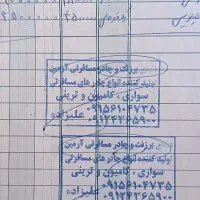 ۲۵۰۰۰
برزنت و چادر مسافرتی آرمین
تولید کننده انواع چادرهای مسافرتی
سواری ، کامیون و تزئینی
۰۹۱۵۶۱۰۴۷۳۵
۰۹۱۲۴۳۶۵۹۰۰ علیزاده
برزنت و چادر مسافرتی آرمین
تولید کننده انواع چادرهای مسافرتی
سواری ، کامیون و تزئینی
۰۹۱۵۶۱۰۴۷۳۵
۰۹۱۲۴۳۶۵۹۰۰ علیزاده